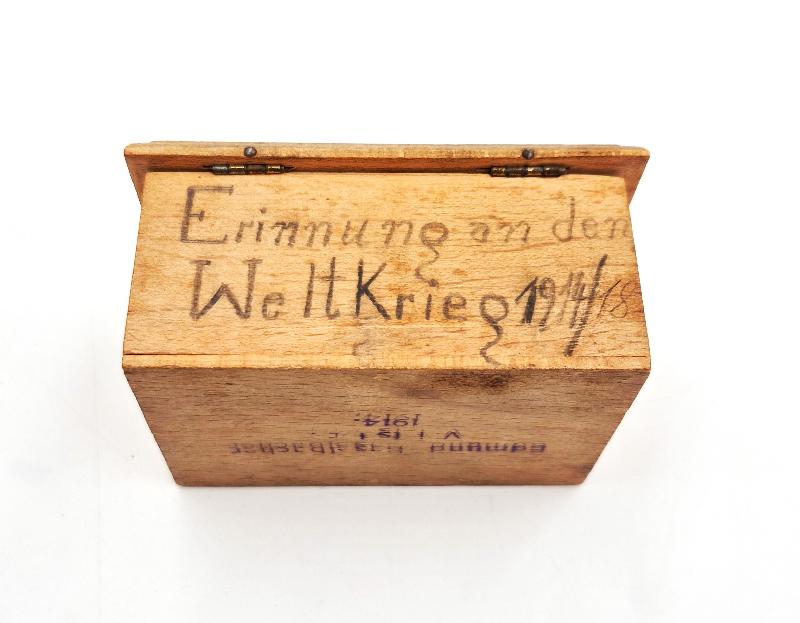 Erinnung an den
WeltKrieg 1914/18
1914.